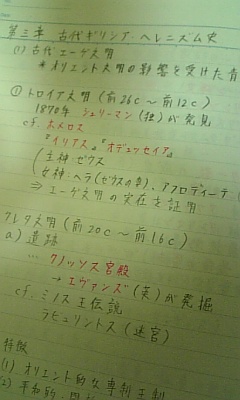 第三章 古代ギリシア・ヘレニズム史
(1) 古代エーゲ文明
* オリエント文明の影響を受けた青
① トロイア文明 (前26c～前12c)
1870年 シュリーマン(独)が発見
cf. ホメロス
『イリアス』『オデュッセイア』
(主神・ゼウス
女神・ヘラ(ゼウスの妻)・アフロディーテ
⇒ エーゲ文明の実在を証明
クレタ文明 (前20c～前16c)
a) 遺跡
… クノッソス宮殿
→ エヴァンズ(英)が発掘
cf. ミノス王伝説
ラビュリントス (迷宮)
特徴
(1) オリエント的な専制王制
(2) 平和的・